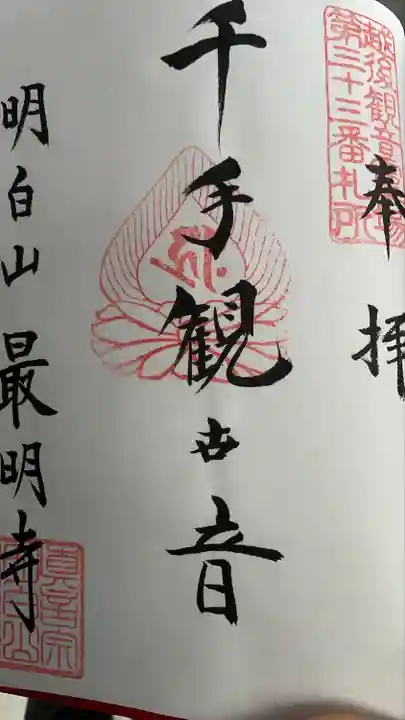 越後観音霊場
第三十三番札所
奉拝
千手観世音
明白山最明寺
真言宗